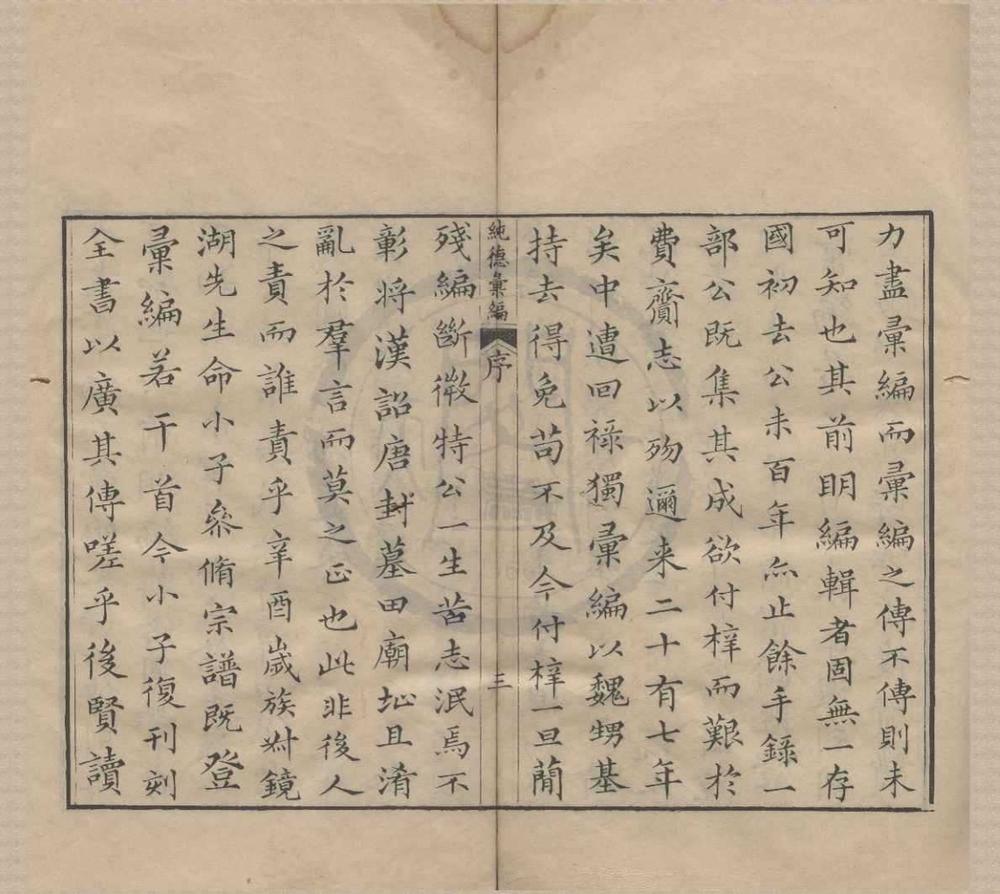 力盡彙編而彙編之傳不傳則未
可知也其前明編輯者固無一存
國初去公未百年亦止餘手錄一
部公既集其成欲付梓而艱於
費齎志以歿邇来二十有七年
矣中遭回祿獨彙編以魏甥基
持去得免苟不及今付梓一旦蕳
純德彙編
序
三
殘編斷徵特公一生苦志泯焉不
彰将漢詔唐封墓田廟址且淆
亂於羣言而莫之正也此非後人
之責而誰責乎辛酉嵗族叔鏡
湖先生命小子叅脩宗譜既登
彙編若干首今小子復刊刻
全書以廣其傳嗟乎後賢讀